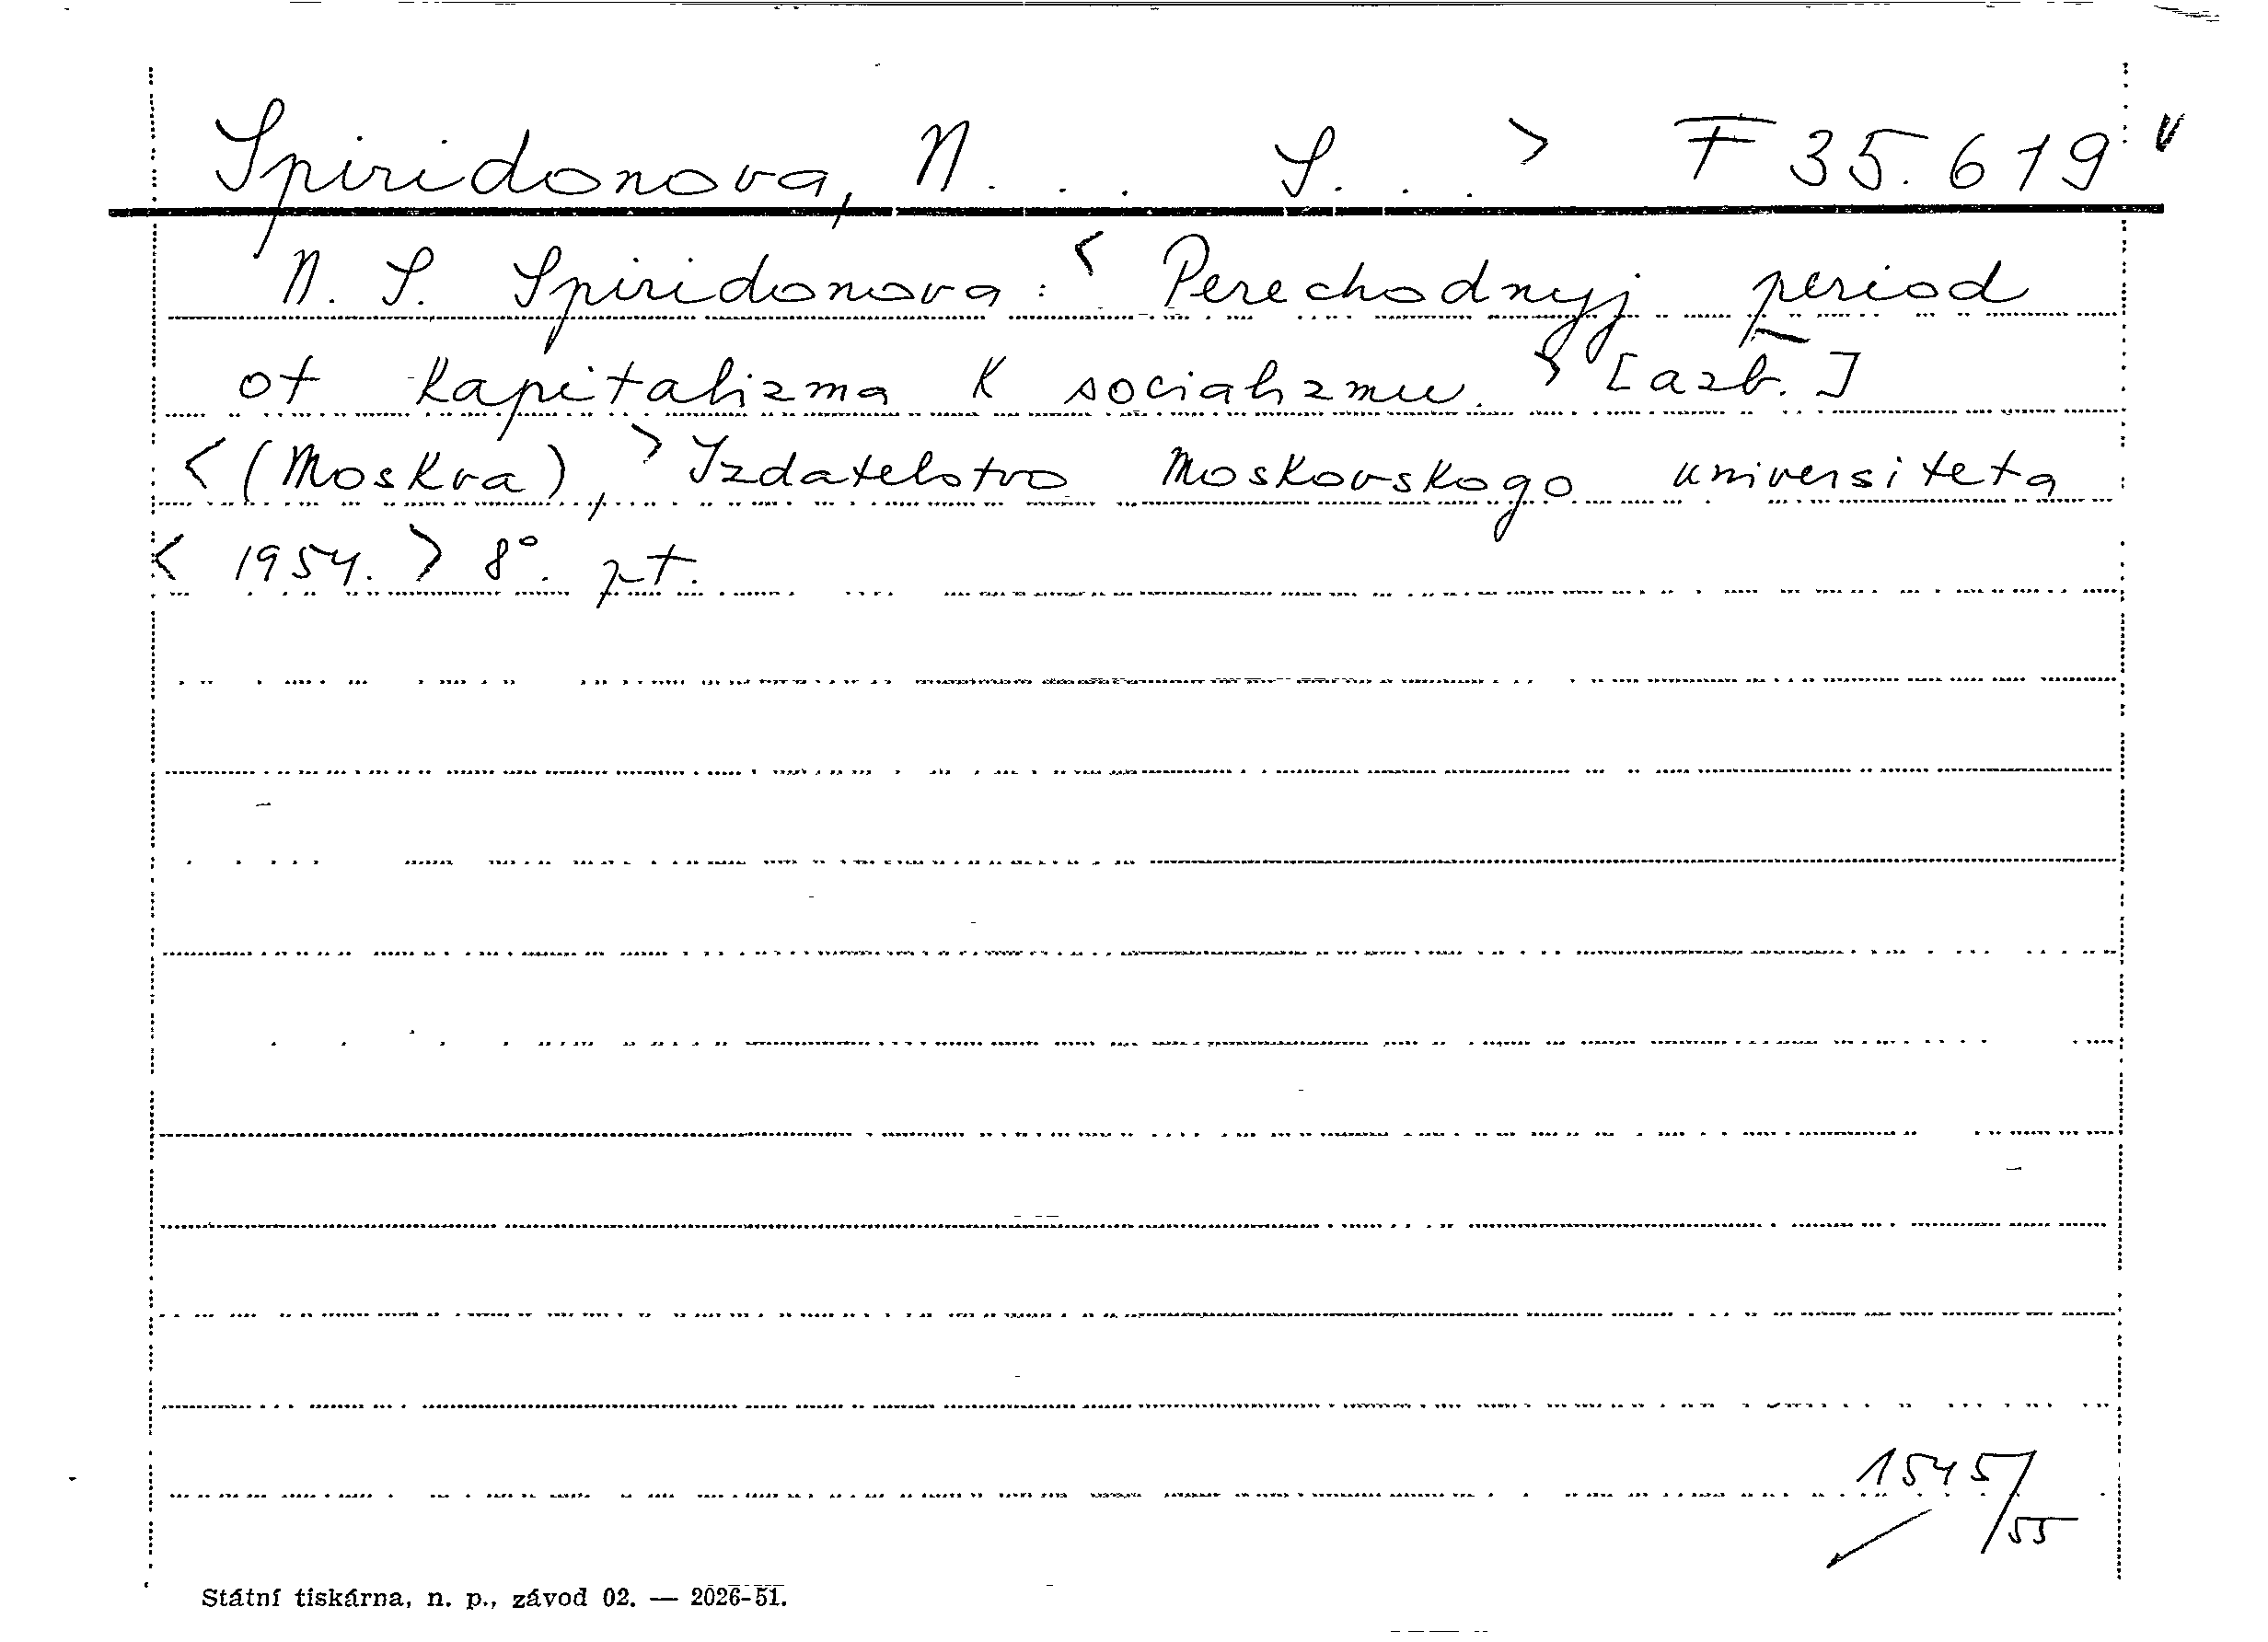 Spiridonova, N... S...> F 35.619 v
N. S. Spiridonova: < Perechodnyj period
ot kapitalizma k socializmu. > [azb.]
< (Moskva), > Izdatelstvo Moskovskogo universiteta
< 1954. > 8°. pt.
1545/55
Státní tiskárna, n. p., závod 02. — 2026-51.